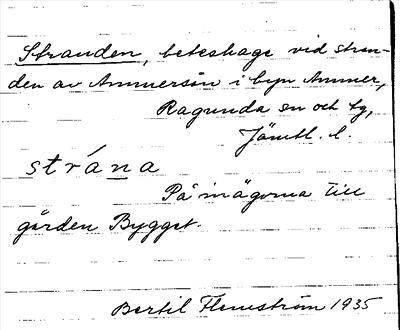 Stranden, beteshage vid stran-
den av Ammersön i byn Ammer,
Ragunda sn och tg,
Jämtl. l.
strána
På inägorna till
gården Bygget.
Bertil Flemström 1935